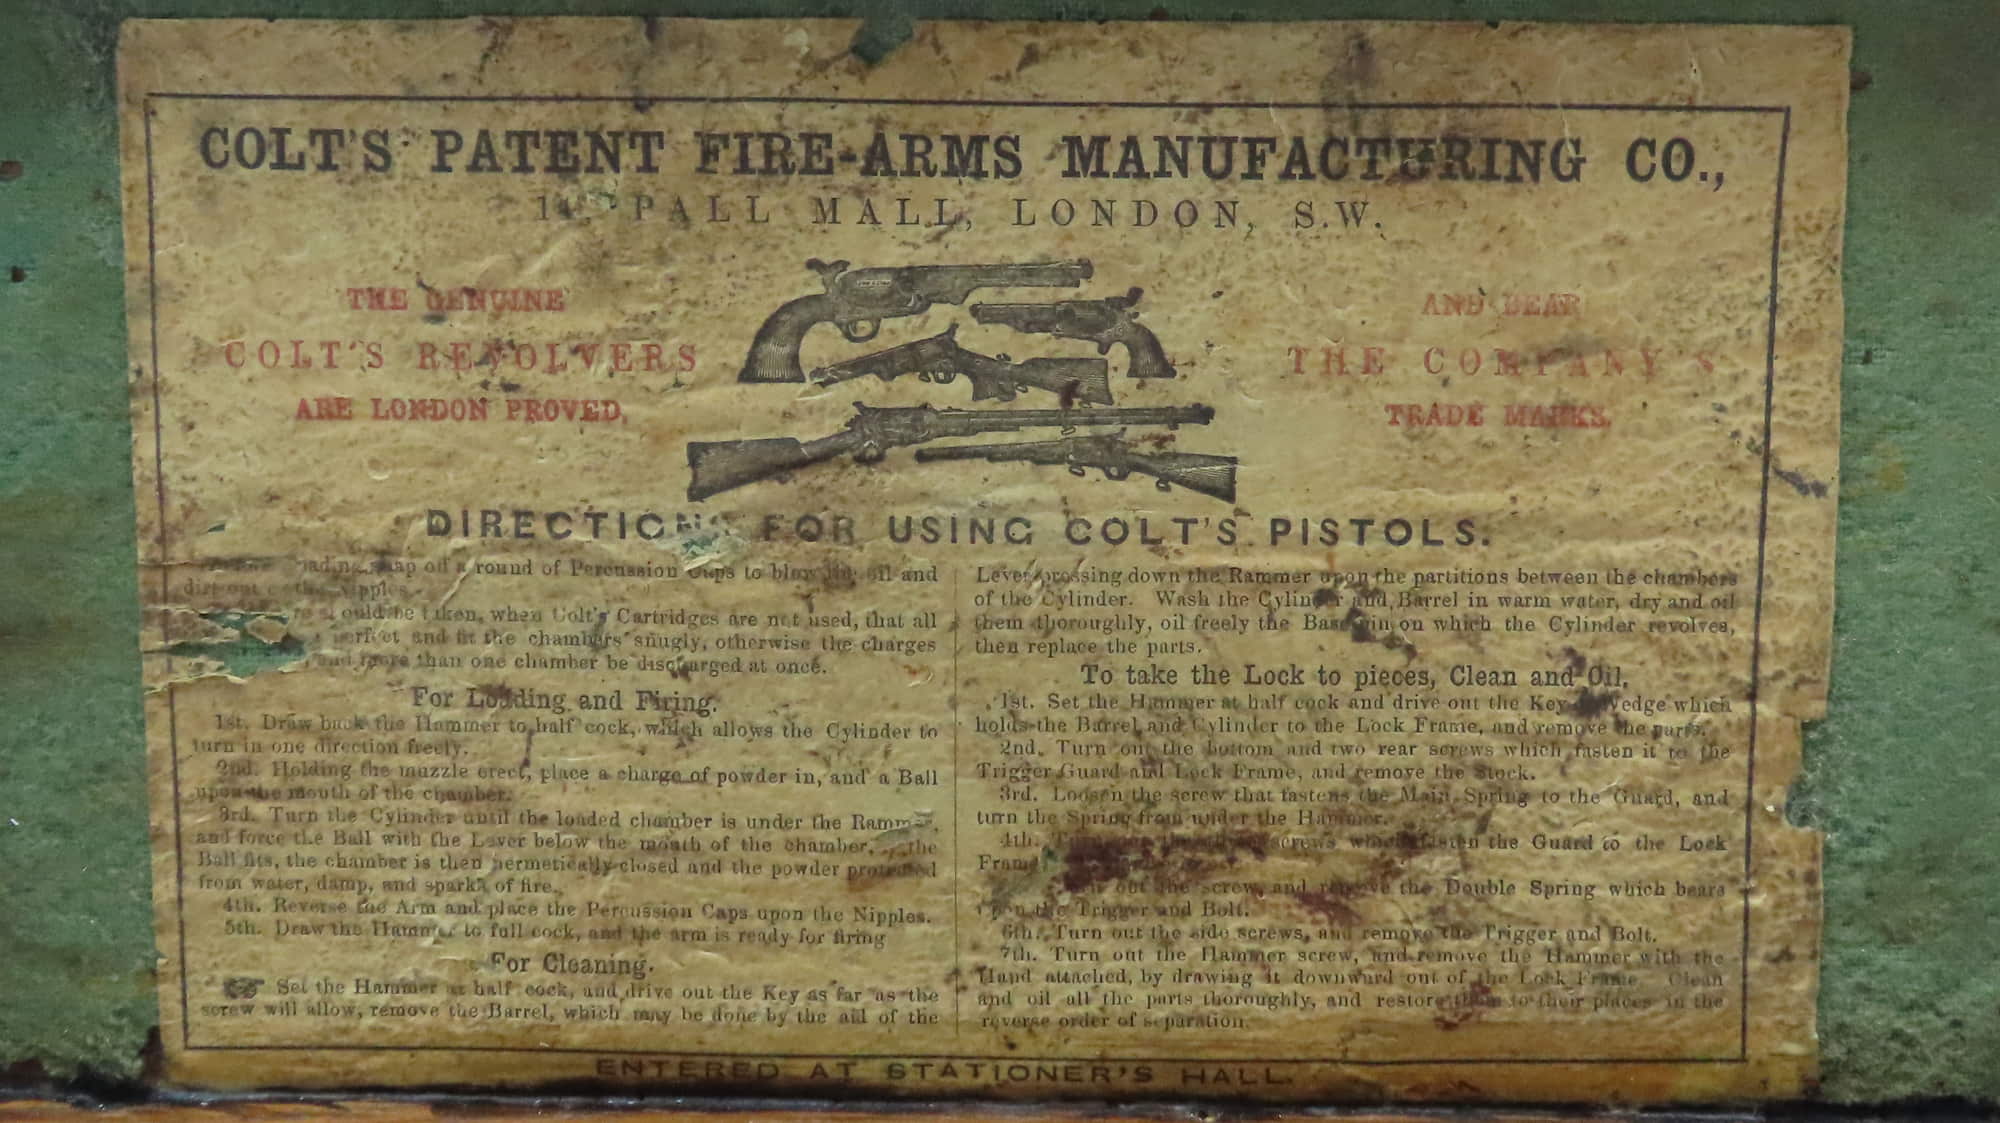 COLT'S PATENT FIRE-ARMS MANUFACTURING CO.,
PALL MALL, LONDON, S.W.
THE GENUINE
COLT'S REVOLVERS
ARE LONDON PROVED,
AND BEAR
THE COMPANY'S
TRADE MARKS.
DIRECTIONS FOR USING COLT'S PISTOLS.
snap off a round of Percussion Caps to blow the oil and
dirt out of the nipples.
should be taken, when Colt's Cartridges are not used, that all
perfect and fit the chambers snugly, otherwise the charges
and more than one chamber be discharged at once.
For Loading and Firing.
1st. Draw back the Hammer to half cock, which allows the Cylinder to
turn in one direction freely.
2nd. Holding the muzzle erect, place a charge of powder in, and a Ball
upon the mouth of the chamber.
3rd. Turn the Cylinder until the loaded chamber is under the Rammer,
and force the Ball with the Lever below the mouth of the chamber, the
Ball fits, the chamber is then hermetically closed and the powder protected
from water, damp, and sparks of fire.
4th. Reverse the Arm and place the Percussion Caps upon the Nipples.
5th. Draw the Hammer to full cock, and the arm is ready for firing
For Cleaning.
☞ Set the Hammer at half cock, and drive out the Key as far as the
screw will allow, remove the Barrel, which may be done by the aid of the
Lever pressing down the Rammer upon the partitions between the chambers
of the Cylinder. Wash the Cylinder and Barrel in warm water, dry and oil
them thoroughly, oil freely the Base pin on which the Cylinder revolves,
then replace the parts.
To take the Lock to pieces, Clean and Oil.
1st. Set the Hammer at half cock and drive out the Key or Wedge which
holds the Barrel and Cylinder to the Lock Frame, and remove the parts.
2nd. Turn out the bottom and two rear screws which fasten it to the
Trigger Guard and Lock Frame, and remove the Stock.
3rd. Loosen the screw that fastens the Main Spring to the Guard, and
turn the Spring from under the Hammer.
4th. Turn out the screws which fasten the Guard to the Lock
Frame
out the screw, and remove the Double Spring which bears
upon the Trigger and Bolt.
6th. Turn out the side screws, and remove the Trigger and Bolt.
7th. Turn out the Hammer screw, and remove the Hammer with the
Hand attached, by drawing it downward out of the Lock Frame Clean
and oil all the parts thoroughly, and restore them to their places in the
reverse order of separation.
ENTERED AT STATIONER'S HALL.